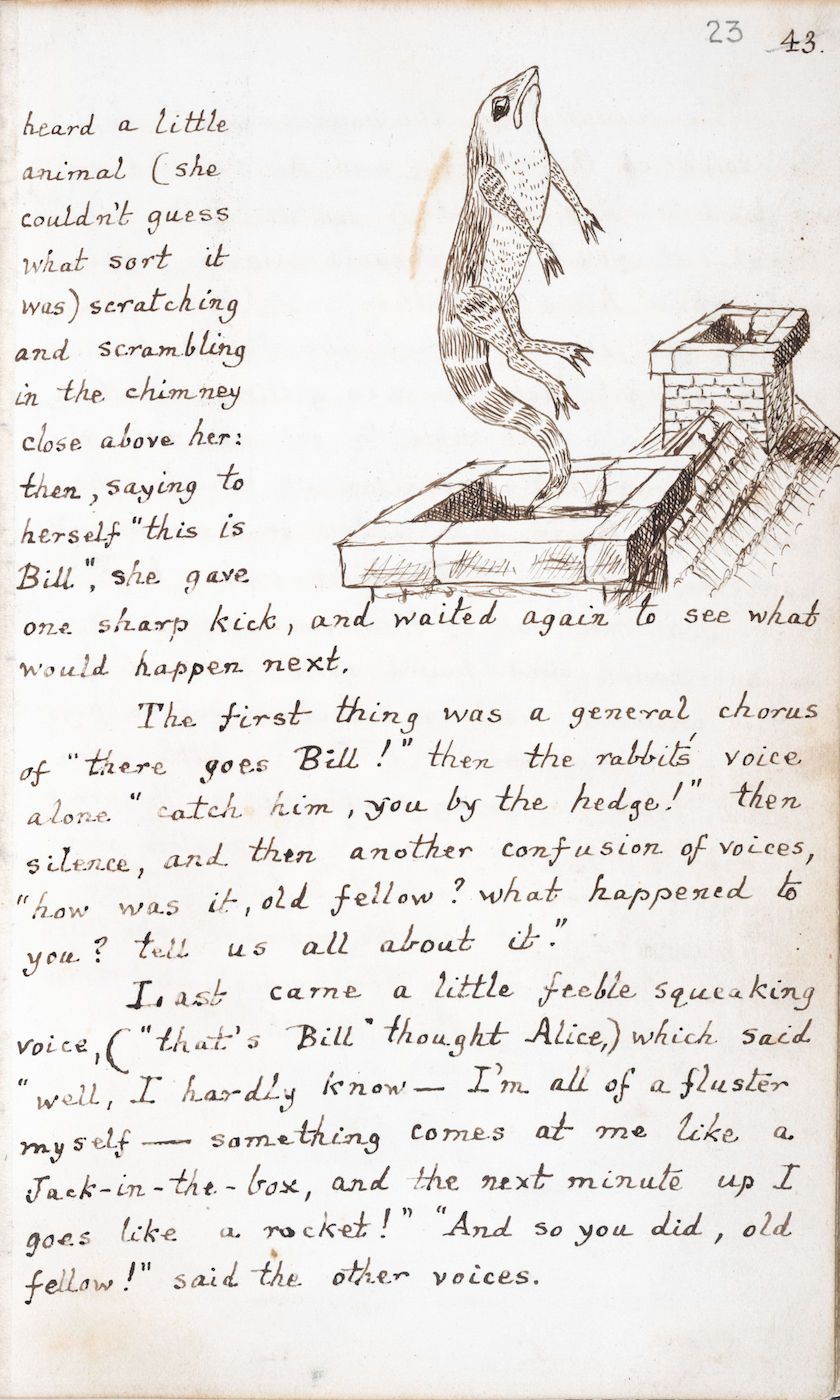 23 43.
heard a little
animal (she
couldn't guess
what sort it
was) scratching
and scrambling
in the chimney
close above her:
then, saying to
herself "this is
Bill", she gave
one sharp kick, and waited again to see what
would happen next.
The first thing was a general chorus
of "there goes Bill!" then the rabbit's voice
alone "catch him, you by the hedge!" then
silence, and then another confusion of voices,
"how was it, old fellow? what happened to
you? tell us all about it."
Last came a little feeble squeaking
voice, ("that's Bill" thought Alice,) which said
"well, I hardly know — I'm all of a fluster
myself — something comes at me like a
Jack-in-the-box, and the next minute up I
goes like a rocket!" "And so you did, old
fellow!" said the other voices.